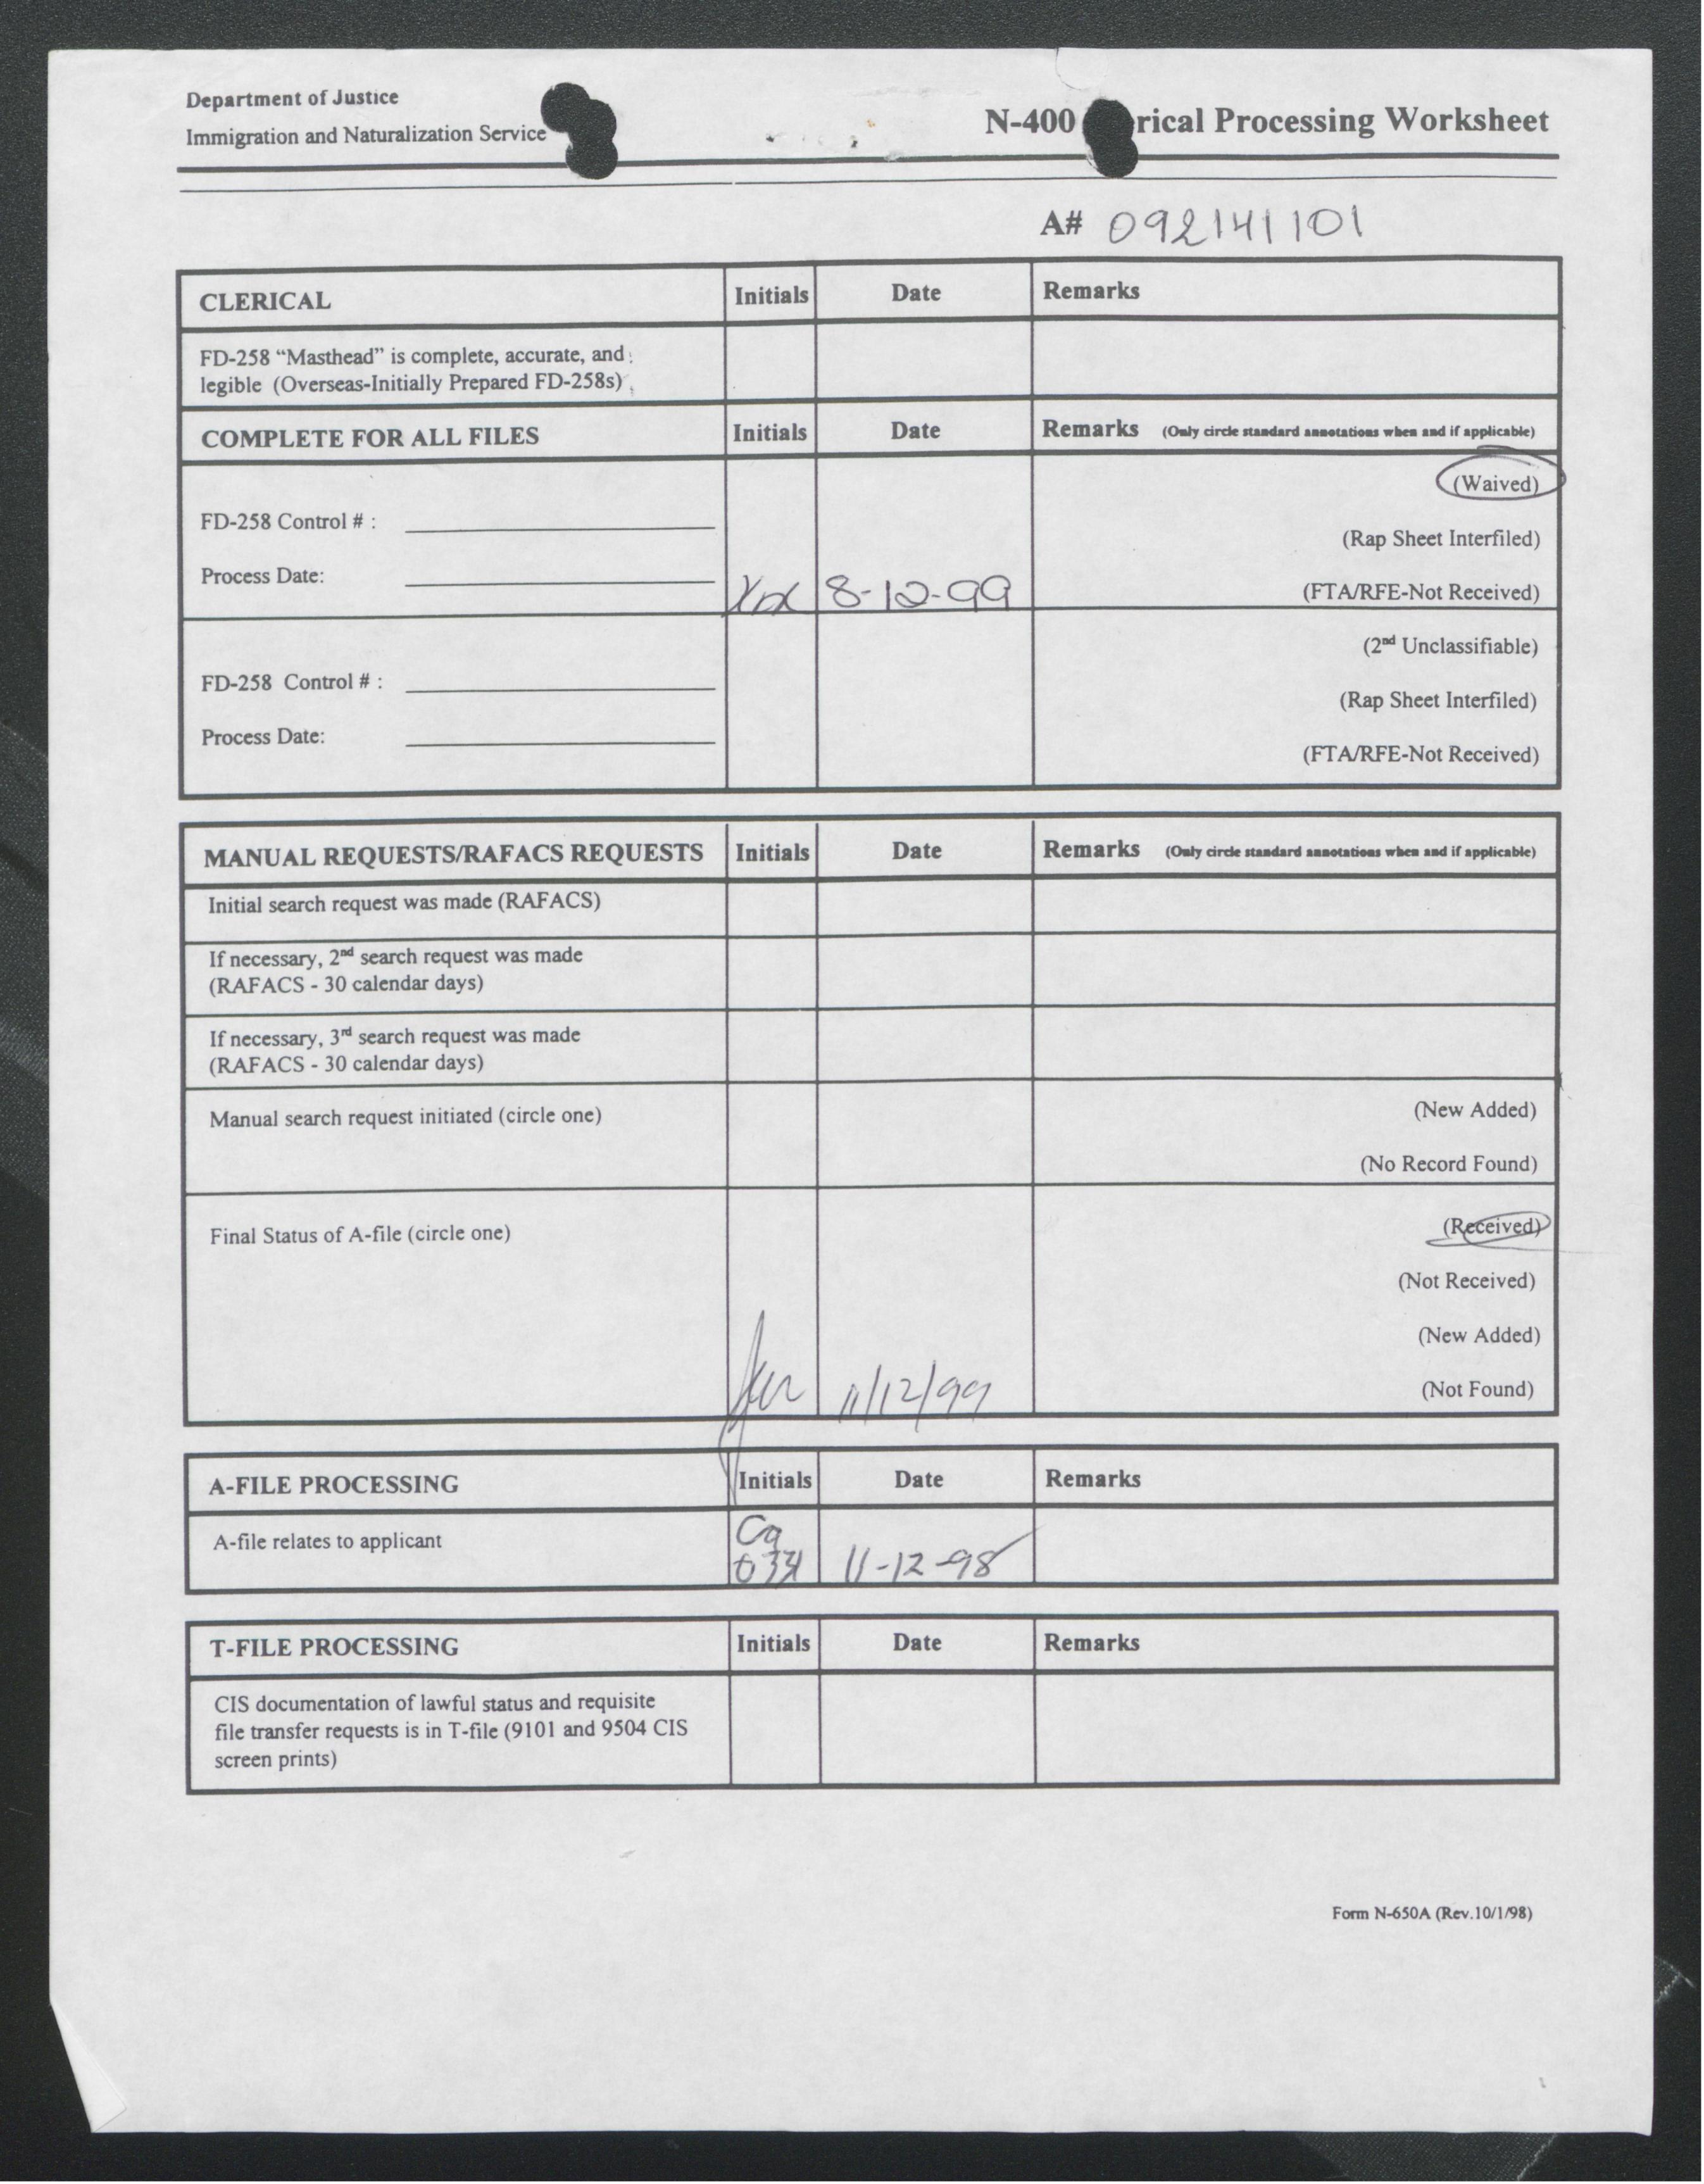 Department of Justice
Immigration and Naturalization Service
N-400 rical Processing Worksheet
A# 092141101
CLERICAL Initials Date Remarks
FD-258 “Masthead” is complete, accurate, and
legible (Overseas-Initially Prepared FD-258s)
COMPLETE FOR ALL FILES Initials Date Remarks (Only circle standard annotations when and if applicable)
(Waived)
FD-258 Control # :
(Rap Sheet Interfiled)
Process Date:
8-12-99 (FTA/RFE-Not Received)
(2nd Unclassifiable)
FD-258 Control # :
(Rap Sheet Interfiled)
Process Date:
(FTA/RFE-Not Received)
MANUAL REQUESTS/RAFACS REQUESTS Initials Date Remarks (Only circle standard annotations when and if applicable)
Initial search request was made (RAFACS)
If necessary, 2nd search request was made
(RAFACS - 30 calendar days)
If necessary, 3rd search request was made
(RAFACS - 30 calendar days)
Manual search request initiated (circle one) (New Added)
(No Record Found)
Final Status of A-file (circle one) (Received)
(Not Received)
(New Added)
11/12/99 (Not Found)
A-FILE PROCESSING Initials Date Remarks
A-file relates to applicant
11-12-98
T-FILE PROCESSING Initials Date Remarks
CIS documentation of lawful status and requisite
file transfer requests is in T-file (9101 and 9504 CIS
screen prints)
Form N-650A (Rev.10/1/98)